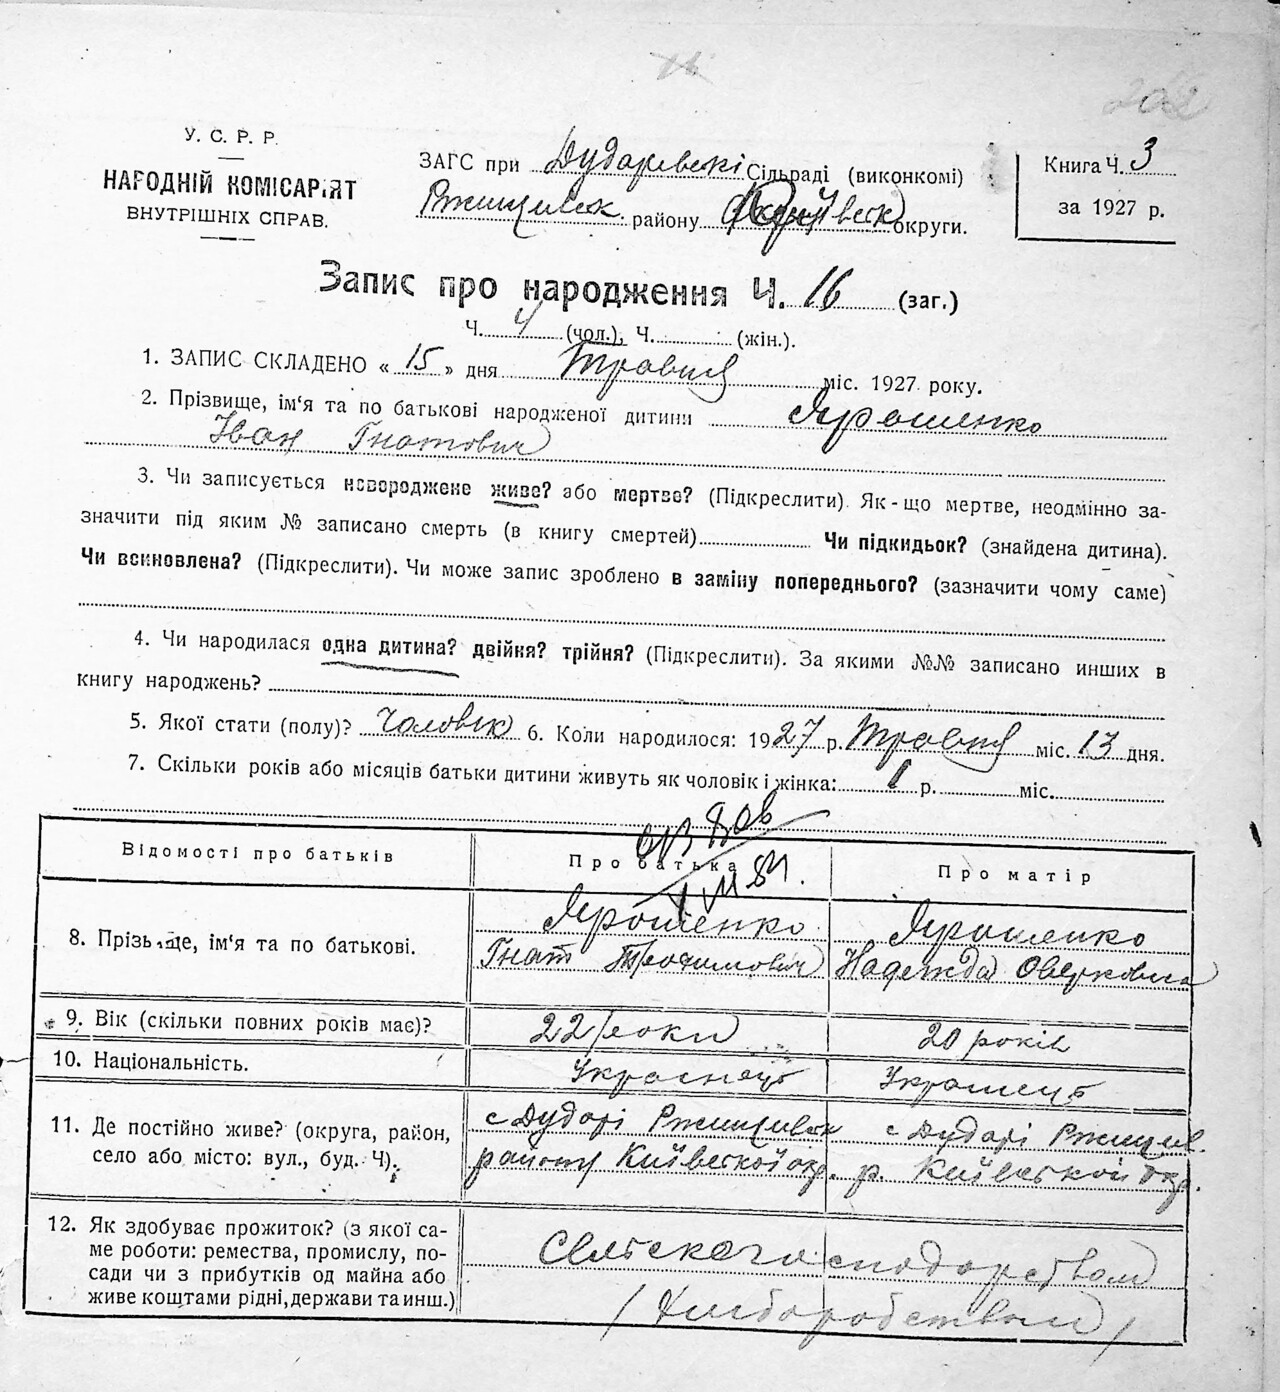 202
У. С. Р. Р.
НАРОДНІЙ КОМІСАРІЯТ
ВНУТРІШНІХ СПРАВ.
ЗАГС при Дударевскі Сільраді (виконкомі)
Ржищивск. району Київск округи.
Книга Ч. 3
за 1927 р.
Запис про народження Ч. 16 (заг.)
Ч. 4 (чол.), Ч. (жін.).
1. ЗАПИС СКЛАДЕНО « 15 » дня Травня міс. 1927 року.
2. Прізвище, ім'я та по батькові народженої дитини Ярошенко
Іван Гнатович
3. Чи записується новороджене живе? або мертве? (Підкреслити). Як-що мертве, неодмінно за-
значити під яким № записано смерть (в книгу смертей) Чи підкидьок? (знайдена дитина).
Чи всиновлена? (Підкреслити). Чи може запис зроблено в заміну попереднього? (зазначити чому саме)
4. Чи народилася одна дитина? двійня? трійня? (Підкреслити). За якими №№ записано инших в
книгу народжень?
5. Якої стати (полу)? Чоловік 6. Коли народилося: 1927 р. Травня міс. 13 дня.
7. Скільки років або місяців батьки дитини живуть як чоловік і жінка: 1 р. міс.
Відомості про батьків
Про батька
Про матір
8. Прізвище, ім'я та по батькові.
Ярошенко
Гнат Трохимович
Ярошенко
Надежда Оверковна
9. Вік (скільки повних років має)?
22 роки
20 років
10. Національність.
Українець
Українець
11. Де постійно живе? (округа, район,
село або місто: вул., буд. Ч).
с Дударі Ржищивск
району Київської окр.
с Дударі Ржищив.
р. Київської окр.
12. Як здобуває прожиток? (з якої са-
ме роботи: ремества, промислу, по-
сади чи з прибутків од майна або
живе коштами рідні, держави та инш.)
Сельскогосподарством
/ Хліборобством /